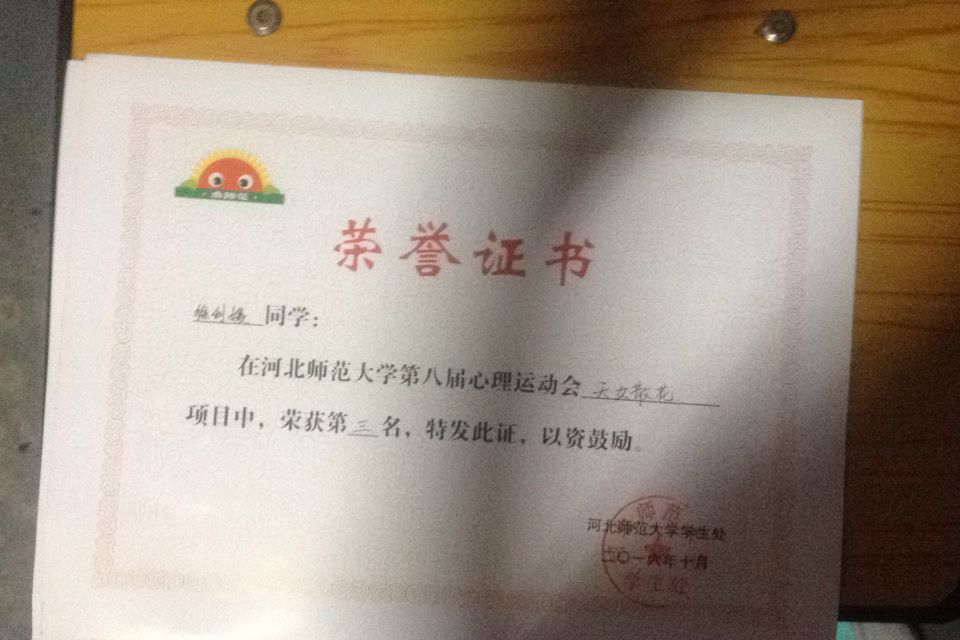 荣誉证书
同学：
在河北师范大学第八届心理运动会 天女散花
项目中，荣获第三名，特发此证，以资鼓励。
河北师范大学学生处
二〇一六年十月
师范
学生处